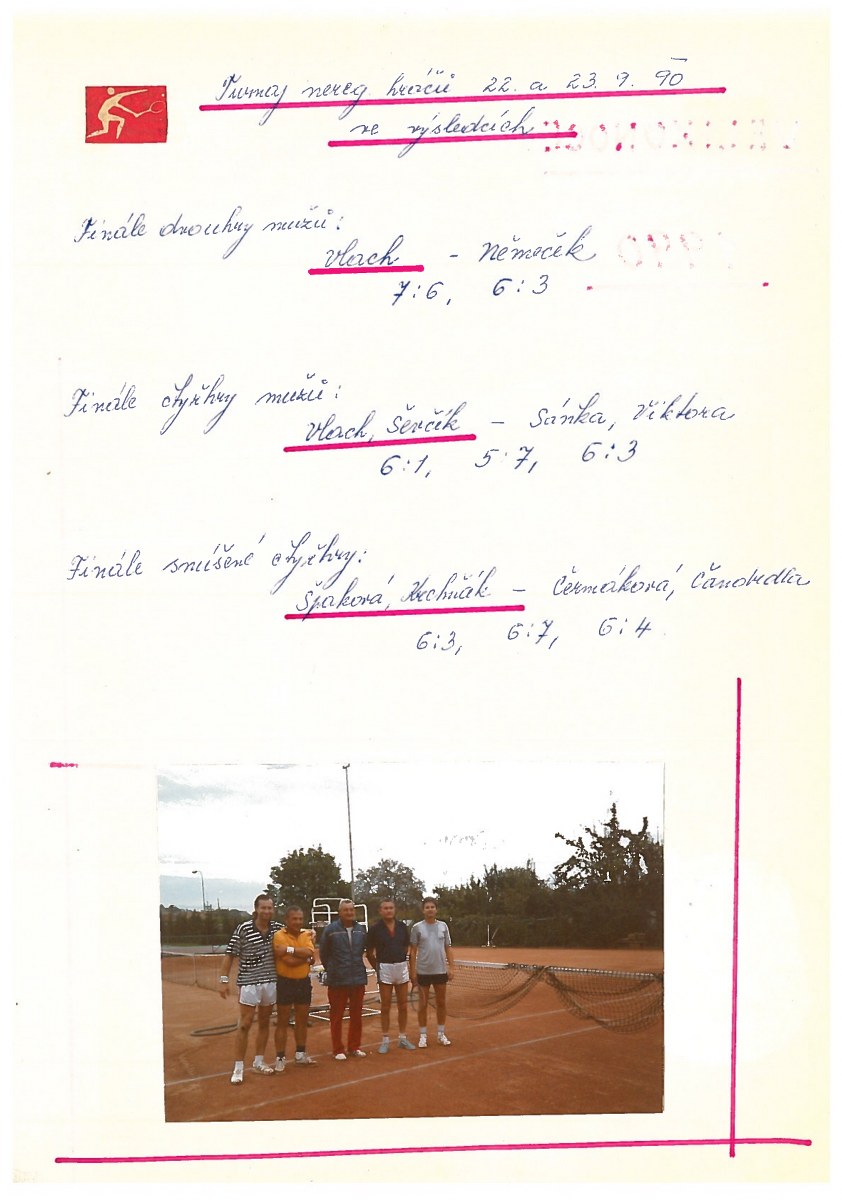 Turnaj nereg. hráčů 22. a 23. 9. 90
ve výsledcích
Finále dvouhry mužů:
Vlach - Němeček
7:6, 6:3
Finále čtyřhry mužů:
Vlach, Ševčík - Sáňka, Viktora
6:1, 5:7, 6:3
Finále smíšené čtyřhry:
Špaková, - Čermáková, Čandrdla
6:3, 6:7, 6:4